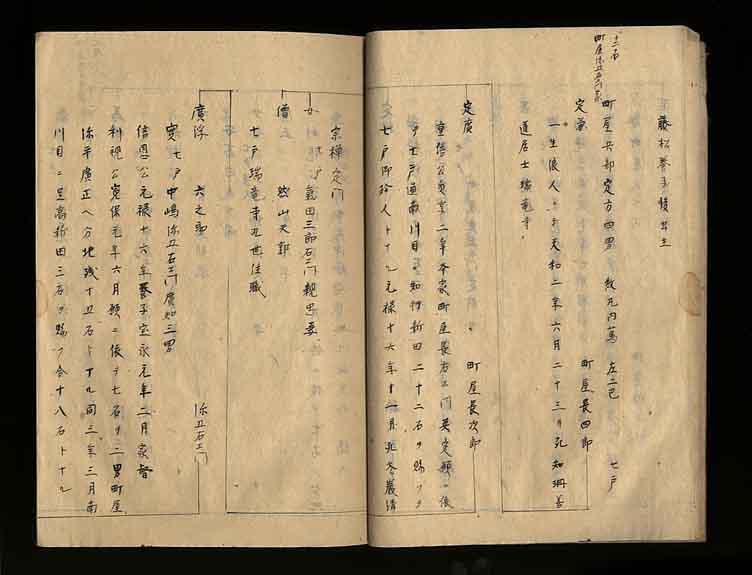 十二石
町屋弥五右衛門家
藤松養子後出生
町屋兵部定方四男 数元内萬 左二已 七戸
定兼 町屋長四郎
一生侯人ニテ天和二年六月二十三日死 知桝善
道居士瑞竜寺
定廣 町屋長次郎
重信公貞享二年本家町屋長右エ門英定願ニ依
テ七戸通南川目ニ知行新田二十二石ヲ賜フ
七戸御給人トナル元禄十六年十一月死 冬嚴清
宗禅定門
女 七戸 氣田三郎右エ門親忠妻
僧 益山大郭
七戸瑞竜寺九世住職
廣浮 六之助 弥五右エ門
實七戸中嶋弥五右エ門廣知三男
信恩公元禄十六年養子宝永元年二月家督
利視公寛保元年六月願ニ依テ七石ヲ二男町屋
弥平廣正ヘ分地残十五石トナル同三年三月南
川目ニ是高新田三石ヲ賜フ合十八石トナル